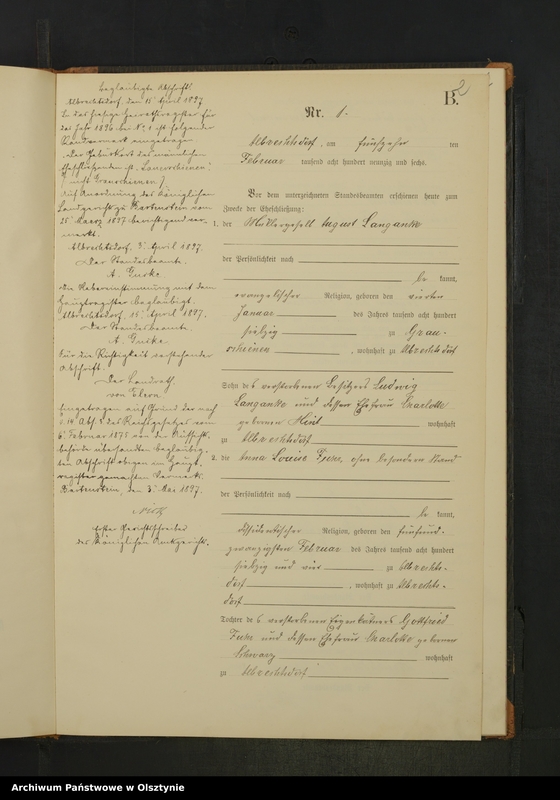 beglaubigte Abschrift.
Albrechtsdorf, den 15. April 1897.
In das hiesige Heirathsregister für
das Jahr 1896 bei No. 1 ist folgender
Randvermerk eingetragen
Der Geburtsort des männlichen
Eheschließenden ist
nicht Grauschienen
Auf Anordnung des Königlichen
Landgerichts zu Bartenstein vom
25. Maerz 1897 berichtigend ver-
merkt.
Albrechtsdorf, 3. April 1897.
Der Standesbeamte.
A.
Die Uebereinstimmung mit dem
Hauptregister beglaubigt.
Albrechtsdorf, 15. April 1897.
Der Standesbeamte.
A.
Für die Richtigkeit vorstehender
Abschrift.
Der Landrath.
von
Eingetragen auf Grund der nach
§ 14 Abs. 2 des Reichsgesetzes vom
6. Februar 1875 von der Aufsichts-
behörde übersandten beglaubig-
ten Abschrift obigen im Haupt-
register gemachten Vermerk.
Bartenstein, den 3. Mai 1897.
erster Gerichtsschreiber
des Königlichen Amtsgerichts.
2
B.
Nr. 1.
Albrechtsdorf, am fünfzehn ten
Februar tausend acht hundert neunzig und sechs.
Vor dem unterzeichneten Standesbeamten erschienen heute zum
Zwecke der Eheschließung:
1. der Müllergesell August Langanke
der Persönlichkeit nach
be kannt,
evangelischer Religion, geboren den vierten
Januar des Jahres tausend acht hundert
siebzig zu Grau-
schienen, wohnhaft zu Albrechtsdorf
Sohn des verstorbenen Besitzers Ludwig
Langanke und dessen Ehefrau Charlotte
geborenen wohnhaft
zu Albrechtsdorf
2. die Anna Louise, ohne besondern Stand
der Persönlichkeit nach
be kannt,
dissidentischer Religion, geboren den fünfund-
zwanzigsten Februar des Jahres tausend acht hundert
siebzig und vier zu Albrechts-
dorf, wohnhaft zu Albrechts-
dorf
Tochter des verstorbenen Eigenkätners Gottfried
und dessen Ehefrau Charlotte geborenen
Schwarz wohnhaft
zu Albrechtsdorf
Archiwum Państwowe w Olsztynie